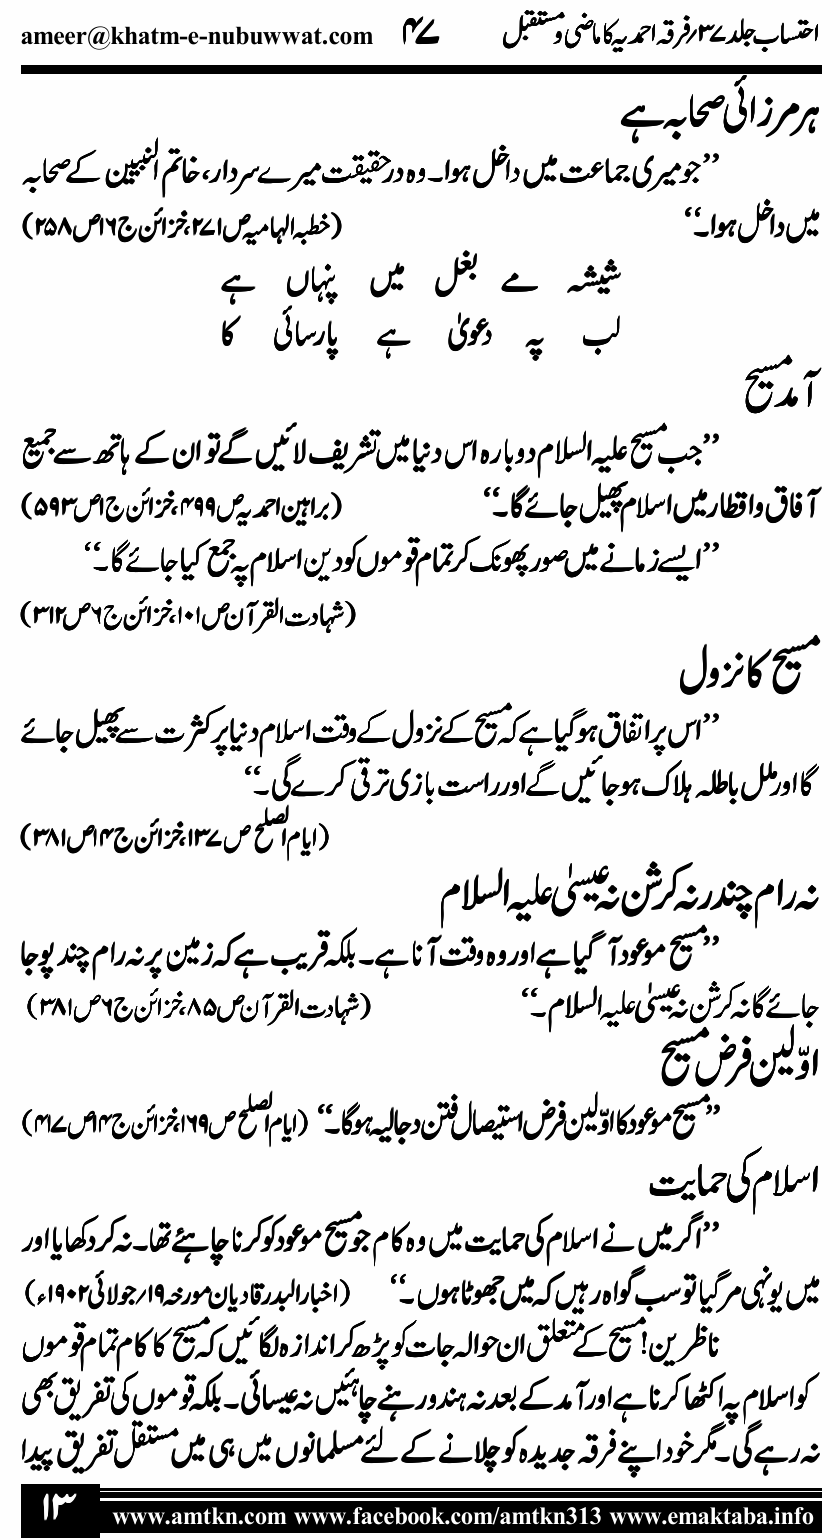 احتساب جلد ۳۷؍ فرقہ احمدیہ کا ماضی و مستقبل ۴۷ ameer@khatm-e-nubuwwat.com
ہر مرزائی صحابہ ہے
’’جو میری جماعت میں داخل ہوا۔ وہ درحقیقت میرے سردار، خاتم النبیین کے صحابہ
میں داخل ہوا۔‘‘ (خطبہ الہامیہ ص۲۷۱، خزائن ج۱۶ ص۲۵۸)
شیشہ مے بغل میں پنہاں ہے
لب پہ دعویٰ ہے پارسائی کا
آمد مسیح
’’جب مسیح علیہ السلام دوبارہ اس دنیا میں تشریف لائیں گے تو ان کے ہاتھ سے جمیع
آفاق واقطار میں اسلام پھیل جائے گا۔‘‘ (براہین احمدیہ ص۴۹۹، خزائن ج۱ ص۵۹۳)
’’ایسے زمانے میں صور پھونک کر تمام قوموں کو دین اسلام پہ جمع کیا جائے گا۔‘‘
(شہادت القرآن ص۱۰۱، خزائن ج۶ ص۳۱۲)
مسیح کا نزول
’’اس پر اتفاق ہوگیا ہے کہ مسیح کے نزول کے وقت اسلام دنیا پر کثرت سے پھیل جائے
گا اور ملل باطلہ ہلاک ہو جائیں گے اور راست بازی ترقی کرے گی۔‘‘
(ایام الصلح ص۱۳۷، خزائن ج۱۴ ص۳۸۱)
نہ رام چندر نہ کرشن نہ عیسیٰ علیہ السلام
’’مسیح موعود آ گیا ہے اور وہ وقت آنا ہے۔ بلکہ قریب ہے کہ زمین پر نہ رام چند پوجا
جائے گا نہ کرشن نہ عیسیٰ علیہ السلام۔‘‘ (شہادت القرآن ص۸۵، خزائن ج۶ ص۳۸۱)
اوّلین فرض مسیح
’’مسیح موعود کا اوّلین فرض استیصال فتن دجالیہ ہوگا۔‘‘ (ایام الصلح ص۱۶۹، خزائن ج۱۴ ص۴۱۷)
اسلام کی حمایت
’’اگر میں نے اسلام کی حمایت میں وہ کام جو مسیح موعود کو کرنا چاہئے تھا۔ نہ کر دکھایا اور
میں یونہی مر گیا تو سب گواہ رہیں کہ میں جھوٹا ہوں۔‘‘ (اخبار البدر قادیان مورخہ ۱۹؍جولائی ۱۹۰۲ء)
ناظرین! مسیح کے متعلق ان حوالہ جات کو پڑھ کر اندازہ لگائیں کہ مسیح کا کام تمام قوموں
کو اسلام پہ اکٹھا کرنا ہے اور آمد کے بعد نہ ہندو رہنے چاہئیں نہ عیسائی۔ بلکہ قوموں کی تفریق بھی
نہ رہے گی۔ مگر خود اپنے فرقہ جدیدہ کو چلانے کے لئے مسلمانوں میں ہی میں مستقل تفریق پیدا
۱۳ www.amtkn.com www.facebook.com/amtkn313 www.emaktaba.info